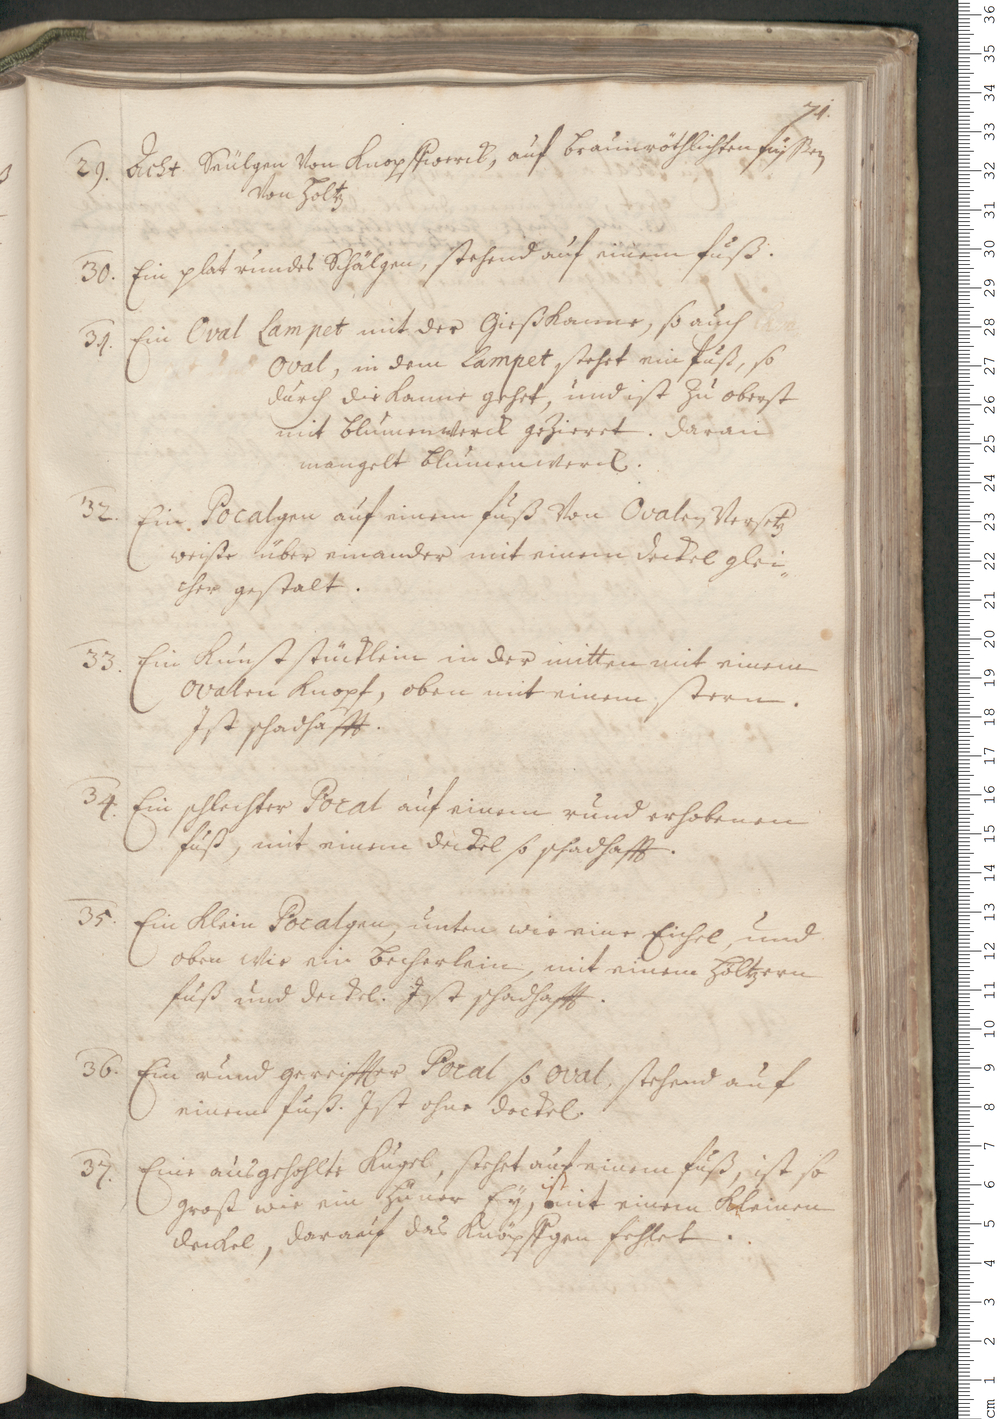 74.
29. Acht Seülgen von Knopffwerck, auf braunröthlichten füssen
von Holtz
30. Ein plat rundes Schälgen, stehend auf einem fuß.
31. Ein Oval Lampet mit der Gießkanne, so auch
oval, in dem Lampet, stehet ein fuß, so
durch die Kanne gehet, und ist zu oberst
mit blumenwerck gezieret. daran
mangelt blumenwerck.
32. Ein Pocalgen auf einem fuß von Ovalen Versetz
weiße über einander mit einem deckel glei„
cher gestalt.
33. Ein Kunststücklein in der mitten mit einem
ovalen Knopf, oben mit einem stern.
Ist schadhafft.
34. Ein schlechter Pocal auf einem rund erhobenen
fuß, mit einem deckel so schadhafft.
35. Ein klein Pocalgen, unten wie eine Eichel, und
oben wie ein becherlein, mit einem höltzern
fuß und deckel. Ist schadhafft.
36. Ein rund gereiffter Pocal so oval, stehend auf
einem fuß. Ist ohne deckel.
37. Eine ausgehohlte Kugel, stehet auf einem fuß, ist so
groß wie ein Hüner Ey, ist mit einem kleinen
deckel, darauf das Knöpffgen fehlet.
36
35
34
33
32
31
30
29
28
27
26
25
24
23
22
21
20
19
18
17
16
15
14
13
12
11
10
9
8
7
6
5
4
3
2
1
cm